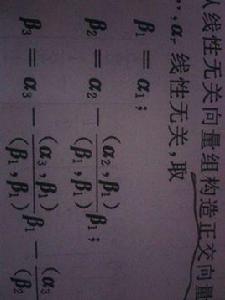 从线性无关向量组构造正交向量
,αᵣ 线性无关,取
β₁ = α₁;
β₂ = α₂ − (α₂, β₁)/(β₁, β₁) β₁;
β₃ = α₃ − (α₃, β₁)/(β₁, β₁) β₁ − (α₃/(β₂